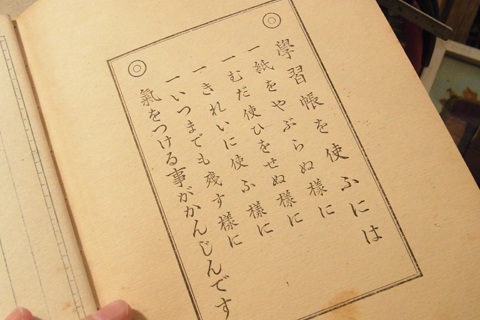 學習帳を使ふには
一紙をやぶらぬ樣に
一むだ使ひをせぬ樣に
一きれいに使ふ樣に
一いつまでも殘す樣に
氣をつける事がかんじんです